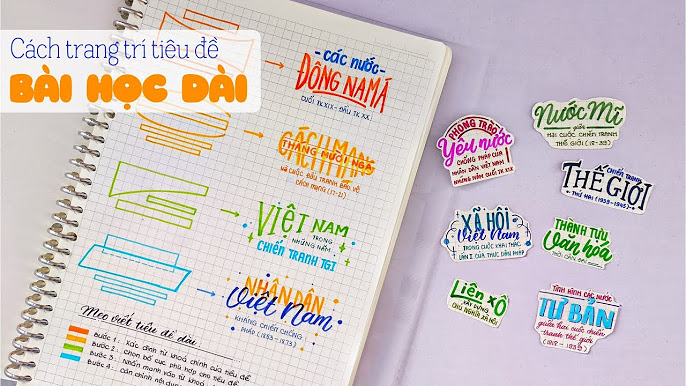 Cách trang trí tiêu đề
BÀI HỌC DÀI
CÁC NƯỚC
ĐÔNG NAM Á
CUỐI TK XIX - ĐẦU TK XX
CÁCH MẠNG
THÁNG MƯỜI NGA
VÀ CUỘC ĐẤU TRANH BẢO VỆ
CÁCH MẠNG (17-21)
VIỆT NAM
TRONG
NHỮNG NĂM
CHIẾN TRANH TG1
NHÂN DÂN
Việt Nam
KHÁNG CHIẾN CHỐNG
PHÁP (1853 - 1873)
Mẹo viết tiêu đề dài
Bước 1. Xác định từ khoá chính của tiêu đề
Bước 2. Chọn bố cục phù hợp cho tiêu đề
Bước 3. Nhấn mạnh vào từ khoá
Bước 4. Căn chỉnh nội dung
PHONG TRÀO
Yêu nước
CHỐNG PHÁP CỦA
NHÂN DÂN VIỆT NAM
NHỮNG NĂM CUỐI TK XIX
Nước Mĩ
giữa
HAI CUỘC CHIẾN TRANH
THẾ GIỚI (18-39)
CHIẾN TRANH
THẾ GIỚI
THỨ HAI (1939 - 1945)
XÃ HỘI
Việt Nam
TRONG CUỘC KHAI THÁC
LẦN I CỦA THỰC DÂN PHÁP
THÀNH TỰU
Văn hóa
THỜI CẬN ĐẠI
Liên Xô
XÂY DỰNG
CHỦ NGHĨA XÃ HỘI
TÌNH HÌNH CÁC NƯỚC
TƯ BẢN
giữa hai cuộc chiến
tranh thế giới
(1918 - 1939)